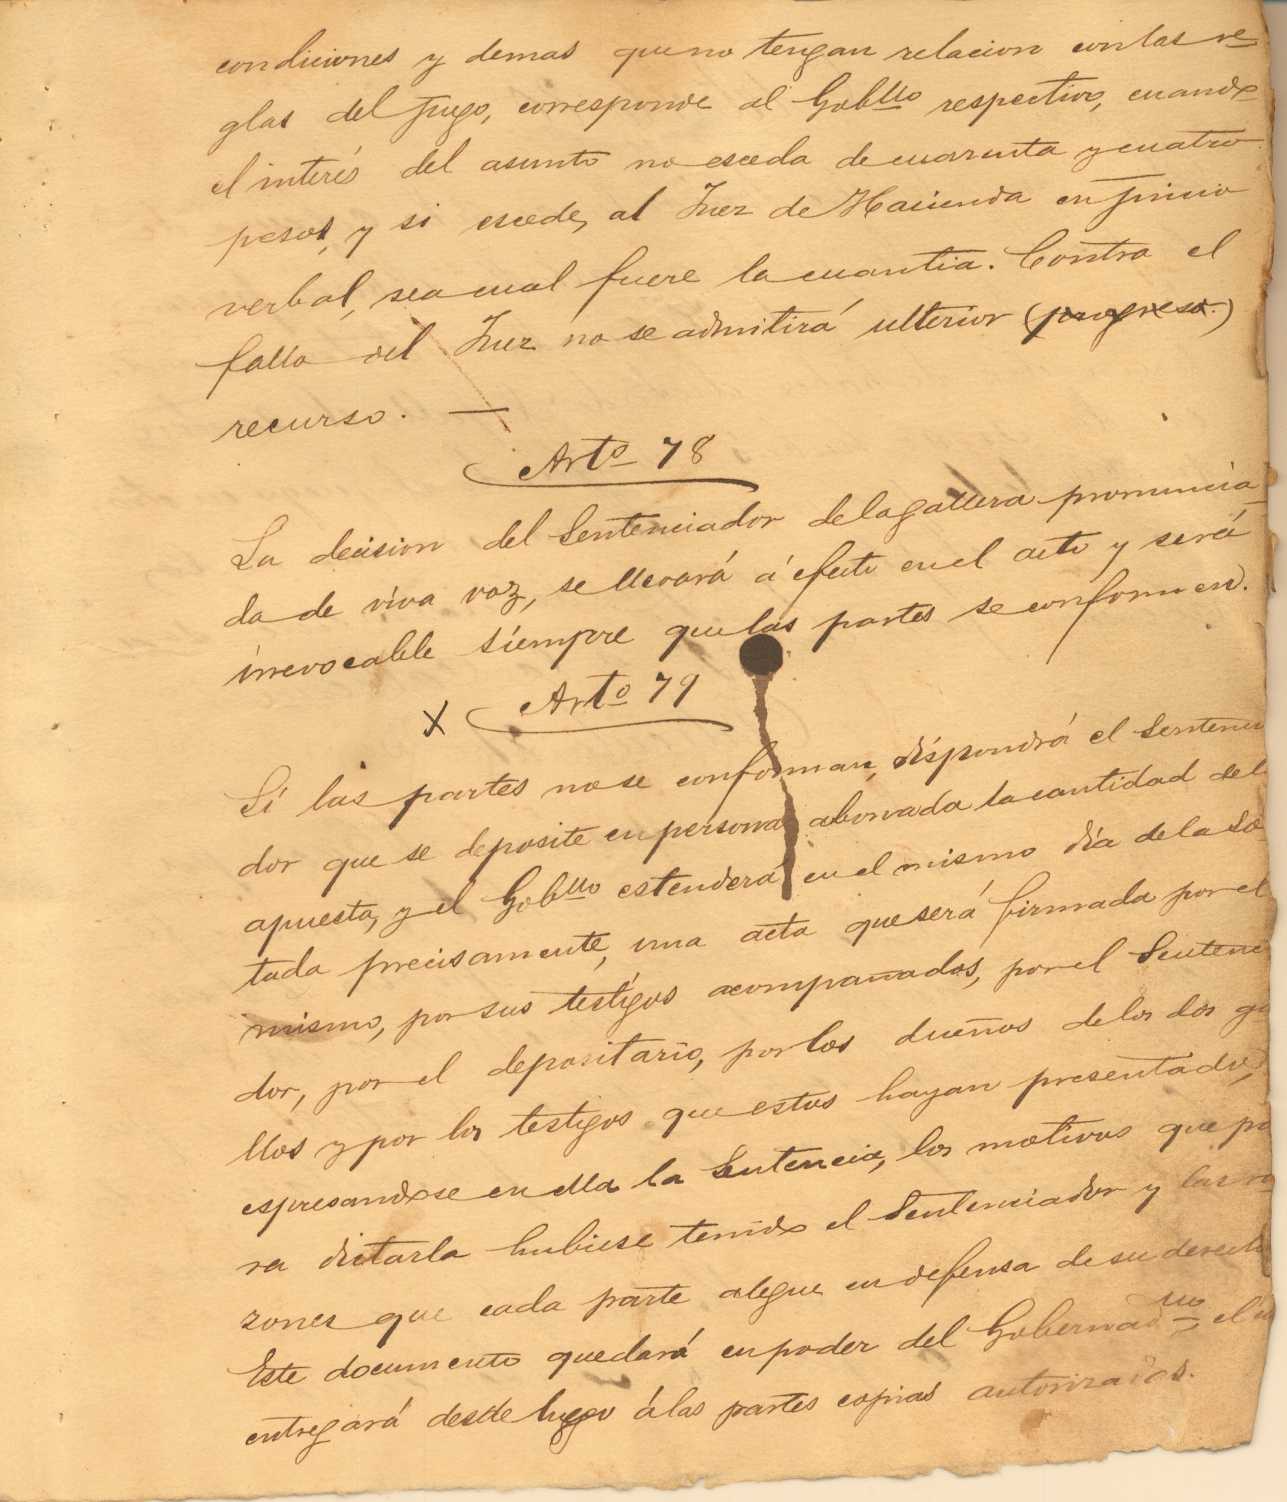 condiciones y demas que no tengan relacion con las re
glas del juego, corresponde al Gobllo respectivo, cuando
el interés del asunto no esceda de cuarenta y cuatro
pesos, y si escede, al Juez de Hacienda en juicio
verbal, sea cual fuere la cuantia. Contra el
fallo del Juez no se admitirá ulterior (progreso.)
recurso. —
Arto 78
La decision del Sentenciador de la gallera pronuncia-
da de viva voz, se llevará á efecto en el acto y será
irrevocable siempre que las partes se conformen.
x Arto 79
Si las partes no se conforman, dispondrá el Sentencia
dor que se deposite en persona abonada la cantidad de l
apuesta, y el Gobllo estenderá en el mismo día de la So
tada precisamente, una acta que será firmada por el
mismo, por sus testigos acompañados, por el Sentenc
dor, por el depositario, por los dueños de los dos ga
llos y por los testigos que estos hayan presentado,
espresandose en ella la Sentencia, los motivos que pa
ra dictarla hubiese tenido el Sentenciador y las ra
zones que cada parte alegue en defensa de su derecho
Este documento quedará en poder del Gobernadllo el c
entregará desde luego á las partes copias autorizadas.